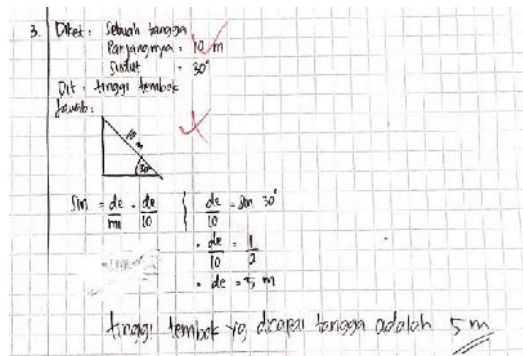 3. Diket : Sebuah tangga
Panjangnya = 10 m
Sudut = 30°
Dit : tinggi tembok
Jawab :
10 m
30°
Sin = de/mi = de/10
de/10 = sin 30°
= de/10 = 1/2
= de = 5 m
tinggi tembok yg dicapai tangga adalah 5 m